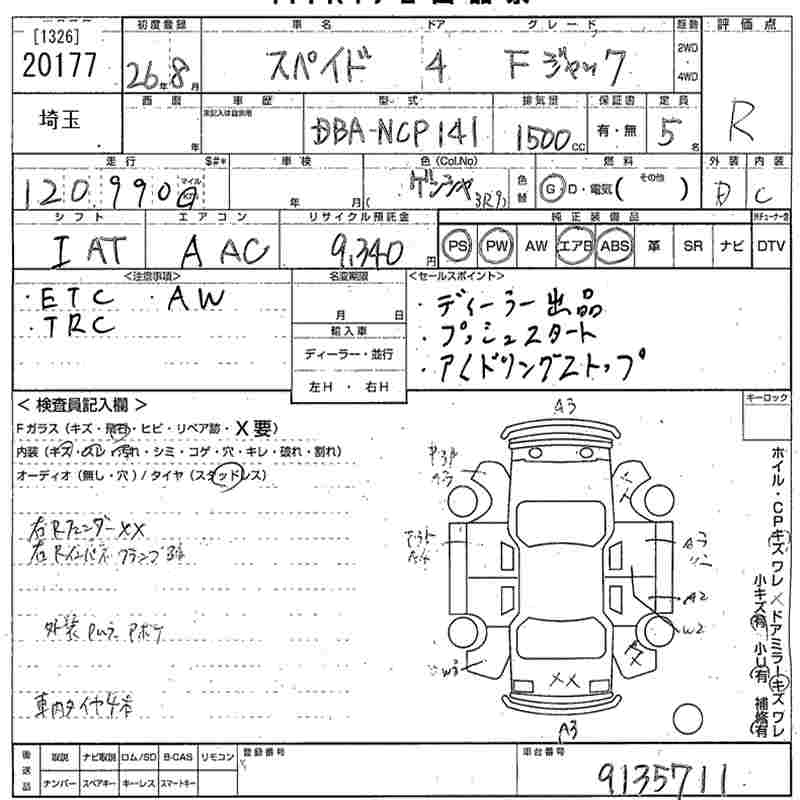 [1326]
20177
初度登録
26年8月
車名
スペイド
ドア
4
グレード
F ジャック
駆動
2WD
4WD
評価点
R
埼玉
西暦
年
車歴
未記入は自家用
型式
DBA-NCP141
排気量
1500cc
保証書
有・無
定員
5名
走行
120,990
マイル
$#*
車検
年 月
色(Col.No)
ゲンシャ
3R9
色替
燃料
G D・電気( その他 )
外装
D
内装
C
シフト
IAT
エアコン
AAC
リサイクル預託金
9,340円
純正装備品
PS PW AW エアB ABS 革 SR ナビ DTV
<注意事項>
・ETC ・AW
・TRC
名変期限
月 日
輸入車
ディーラー・並行
左H ・ 右H
<セールスポイント>
・ディーラー出品
・プッシュスタート
・アイドリングストップ
<検査員記入欄>
Fガラス(キズ・飛石・ヒビ・リペア跡・X要)
内装(キズ・スレ・汚れ・シミ・コゲ・穴・キレ・破れ・割れ)
オーディオ(無し・穴)/タイヤ(スタッドレス)
右Rフェンダー××
右Rインパネ クランプ跡
外装 Pムラ Pボケ
車内タイヤ4本
キーロック
ホイル・CPキズワレ/ドアミラーキズワレ
小キズ有 小U有 補修有
A3
A3
A2
W2
W3
××
A3
後送品
取説 ナビ取説 ロム/SD B-CAS リモコン
ナンバー スペアキー キーレス スマートキー
登録番号
車台番号
9135711